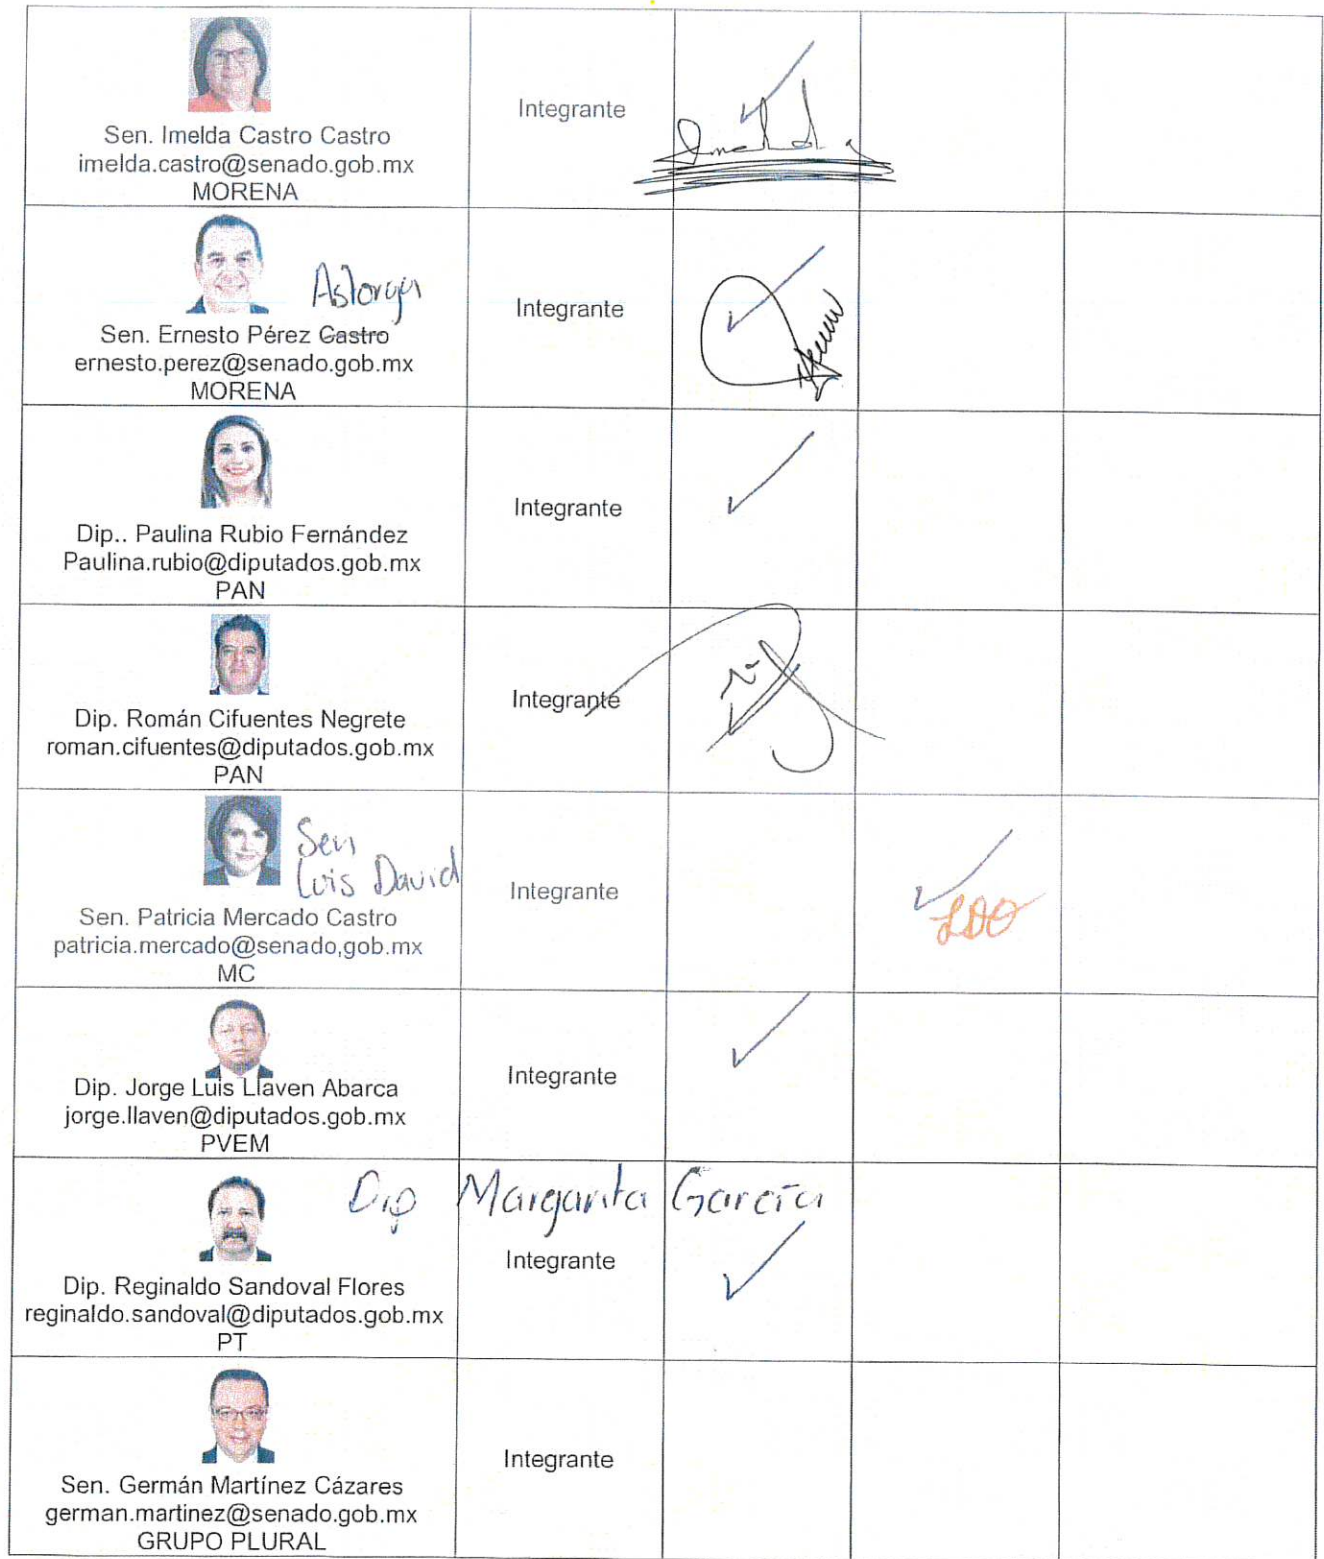 Sen. Imelda Castro Castro
imelda.castro@senado.gob.mx
MORENA
Integrante
Astorga
Sen. Ernesto Pérez Castro
ernesto.perez@senado.gob.mx
MORENA
Integrante
Dip.. Paulina Rubio Fernández
Paulina.rubio@diputados.gob.mx
PAN
Integrante
Dip. Román Cifuentes Negrete
roman.cifuentes@diputados.gob.mx
PAN
Integrante
Sen
Luis David
Sen. Patricia Mercado Castro
patricia.mercado@senado,gob.mx
MC
Integrante
LDO
Dip. Jorge Luis Llaven Abarca
jorge.llaven@diputados.gob.mx
PVEM
Integrante
Dip Margarita García
Dip. Reginaldo Sandoval Flores
reginaldo.sandoval@diputados.gob.mx
PT
Integrante
Sen. Germán Martínez Cázares
german.martinez@senado.gob.mx
GRUPO PLURAL
Integrante